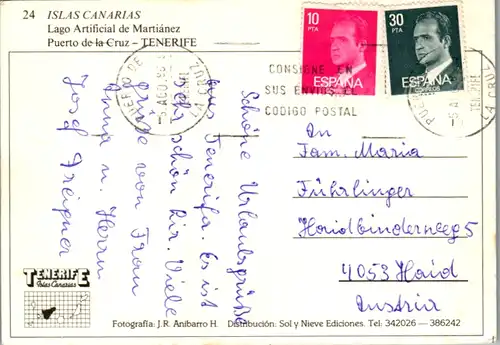 24 ISLAS CANARIAS
Lago Artificial de Martiánez
Puerto de la Cruz – TENERIFE
10
PTA
ESPAÑA
30
PTA
ESPAÑA
CORREOS
PUERTO DE
LA CRUZ
5 AGO
TENERIFE
CONSIGNE EN
SUS ENVIOS EL
CODIGO POSTAL
PUERTO
LA CRUZ
Schöne Urlaubsgrüße
aus Tenerifa. Es ist
sehr schön hir. Viele
Grüße von Frau
Anna u. Herrn
Josef Freigner
An
Fam. Maria
Führlinger
Haidbinderweg 5
4053 Haid
Austria
TENERIFE
Islas Canarias
Fotografía: J.R. Anibarro H. Distribución: Sol y Nieve Ediciones. Tel: 342026 — 386242